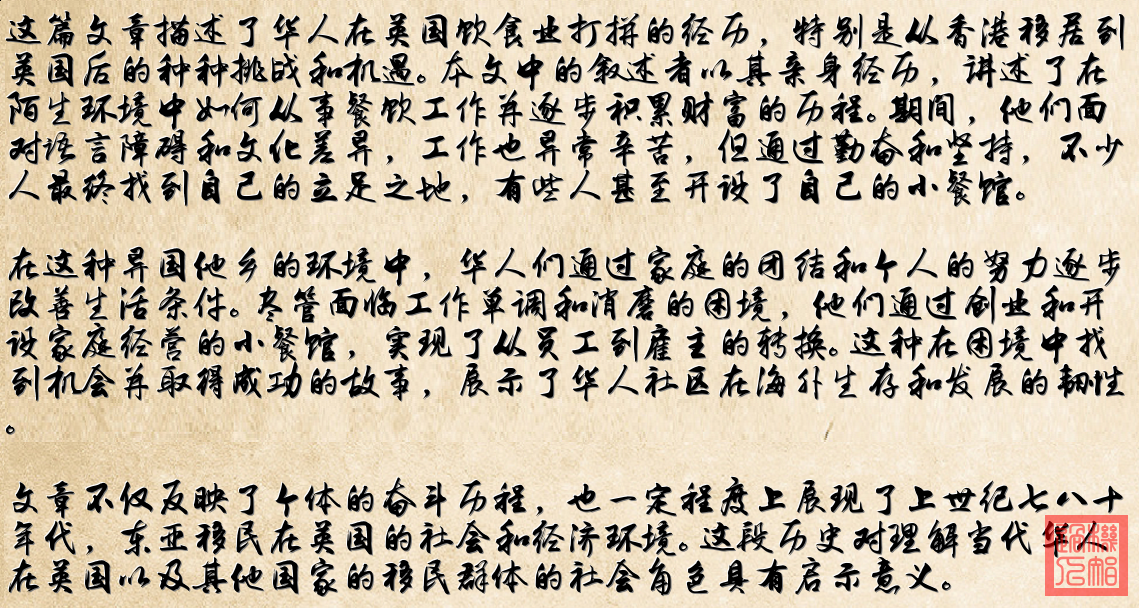 这篇文章描述了华人在英国饮食业打拼的经历，特别是从香港移居到
英国后的种种挑战和机遇。本文中的叙述者以其亲身经历，讲述了在
陌生环境中如何从事餐饮工作并逐步积累财富的历程。期间，他们面
对语言障碍和文化差异，工作也异常辛苦，但通过勤奋和坚持，不少
人最终找到自己的立足之地，有些人甚至开设了自己的小餐馆。
在这种异国他乡的环境中，华人们通过家庭的团结和个人的努力逐步
改善生活条件。尽管面临工作单调和消磨的困境，他们通过创业和开
设家庭经营的小餐馆，实现了从员工到雇主的转换。这种在困境中找
到机会并取得成功的故事，展示了华人社区在海外生存和发展的韧性
。
文章不仅反映了个体的奋斗历程，也一定程度上展现了上世纪七八十
年代，东亚移民在英国的社会和经济环境。这段历史对理解当代华人
在英国以及其他国家的移民群体的社会角色具有启示意义。